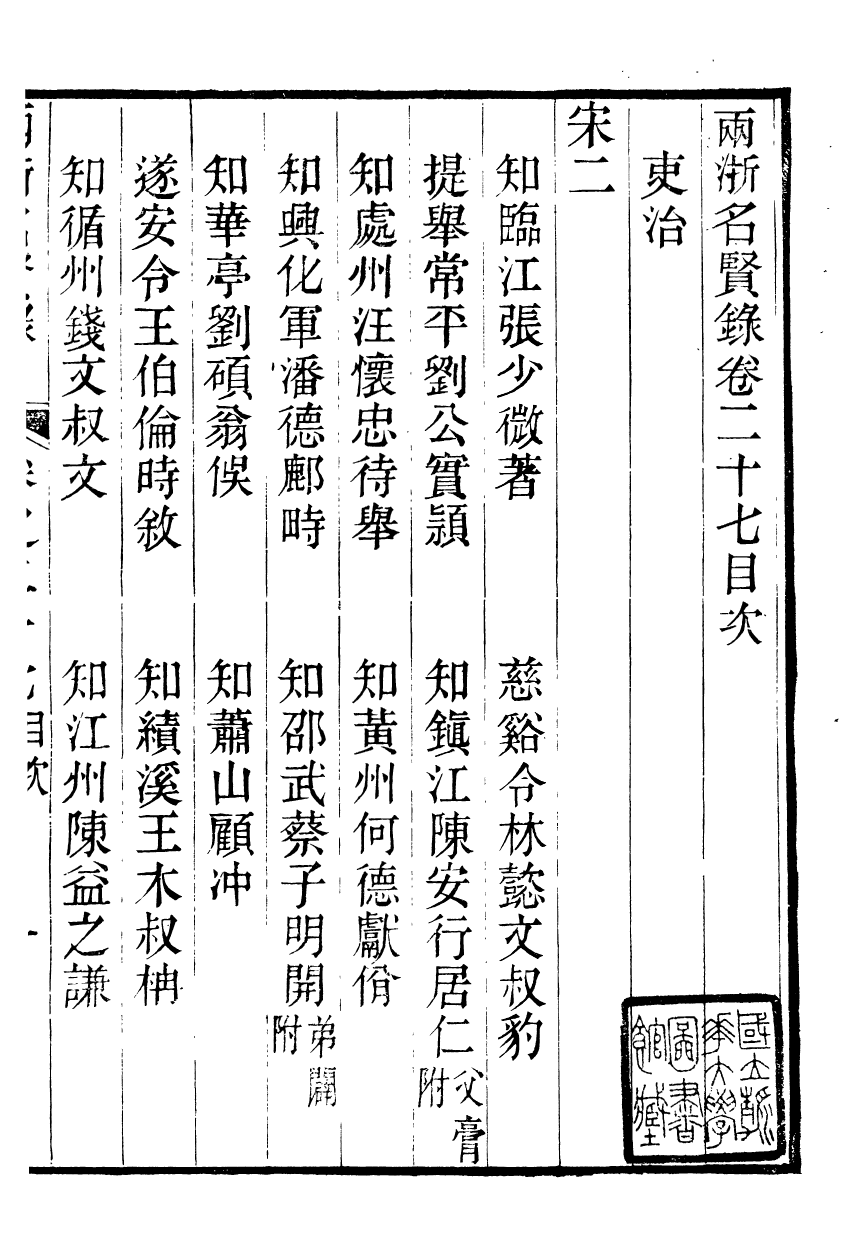 兩浙名賢錄卷二十七目次
吏治
宋二
知臨江張少微著 慈谿令林懿文叔豹
提舉常平劉公實頴 知鎭江陳安行居仁父膏附
知處州汪懷忠待舉 知黃州何德獻偁
知興化軍潘德鄜畤 知邵武蔡子明開弟闢附
知華亭劉碩翁俁 知蕭山顧冲
遂安令王伯倫時敘 知績溪王木叔柟
知循州錢文叔文 知江州陳益之謙
目次
一
國立清華大學圖書館藏